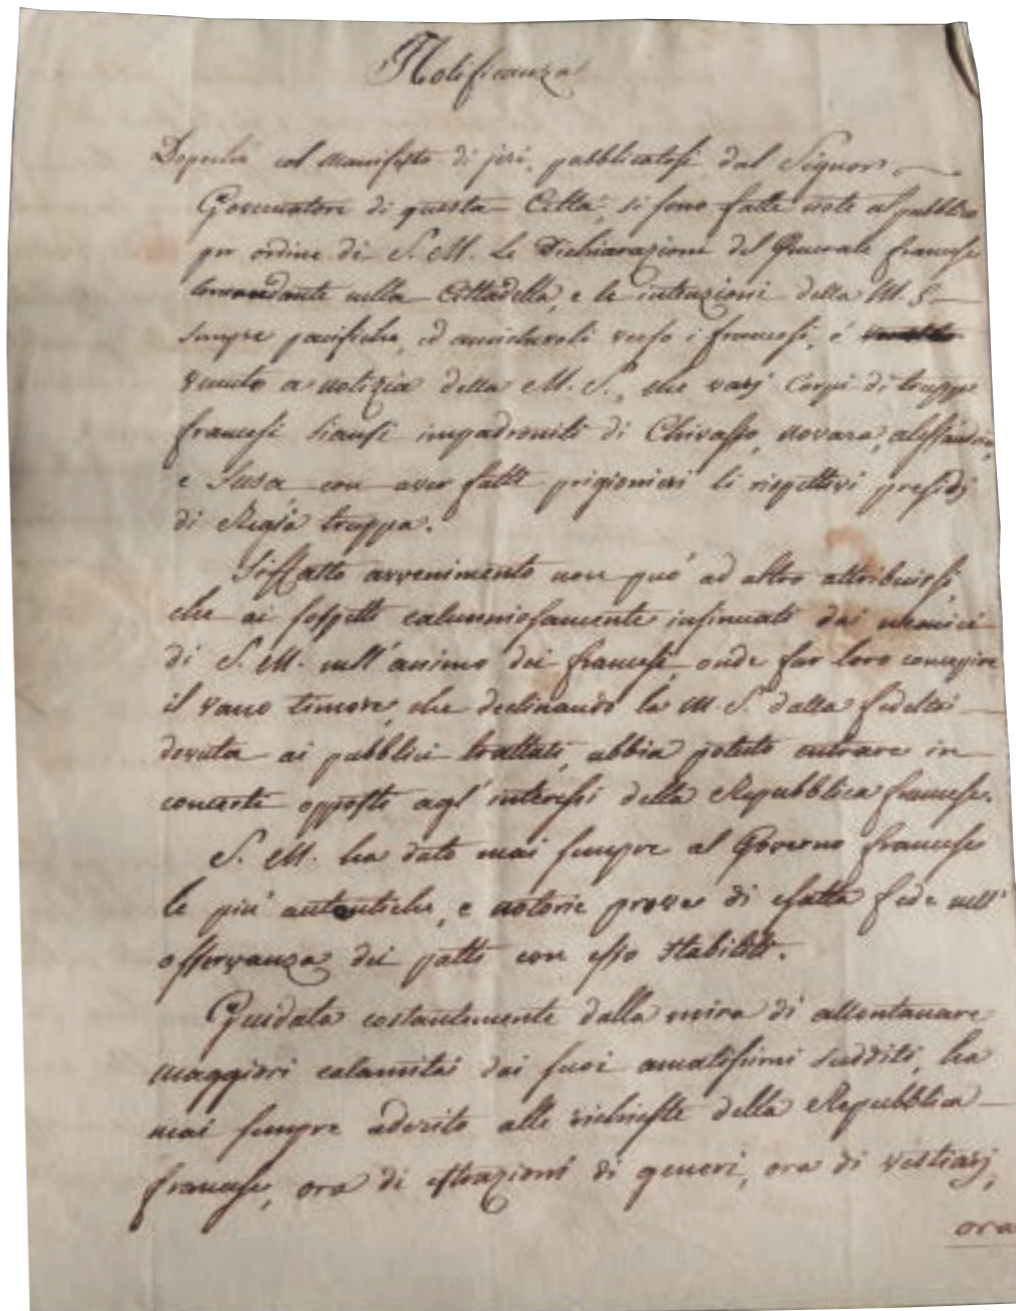 Notificanza
Dopochè col Manifesto di jeri, pubblicatosi dal Signor
Governatore di questa Città, si sono fatte note al pubblico
per ordine di S. M. le Dichiarazioni del Generale francese
Comandante nella Cittadella, e le intenzioni della M. S.
sempre pacifiche, ed amichevoli verso i francesi, é
venuto a notizia della M. S., che varj Corpi di truppe
francesi siansi impadroniti di Chivasso, Novara, Alessandria,
e Susa con aver fatti prigionieri li rispettivi presidj
di Regia truppa.
Siffatto avvenimento non può ad altro attribuirsi,
che ai sospetti calunniosamente insinuati dai nemici
di S. M. nell'animo dei francesi, onde far loro concepire
il vano timore, che declinando la M. S. dalla fedeltà
dovuta ai pubblici trattati, abbia potuto entrare in
concerti opposti agl'interessi della Repubblica francese.
S. M. ha dato mai sempre al Governo francese
le più autentiche, e notorie prove di esatta fede nell'
osservanza dei patti con esso stabiliti.
Guidata costantemente dalla mira di allontanare
maggiori calamità dai suoi amatissimi sudditi, ha
mai sempre aderito alle richieste della Repubblica
francese, ora di estrazioni di generi, ora di vestiarj,
ora